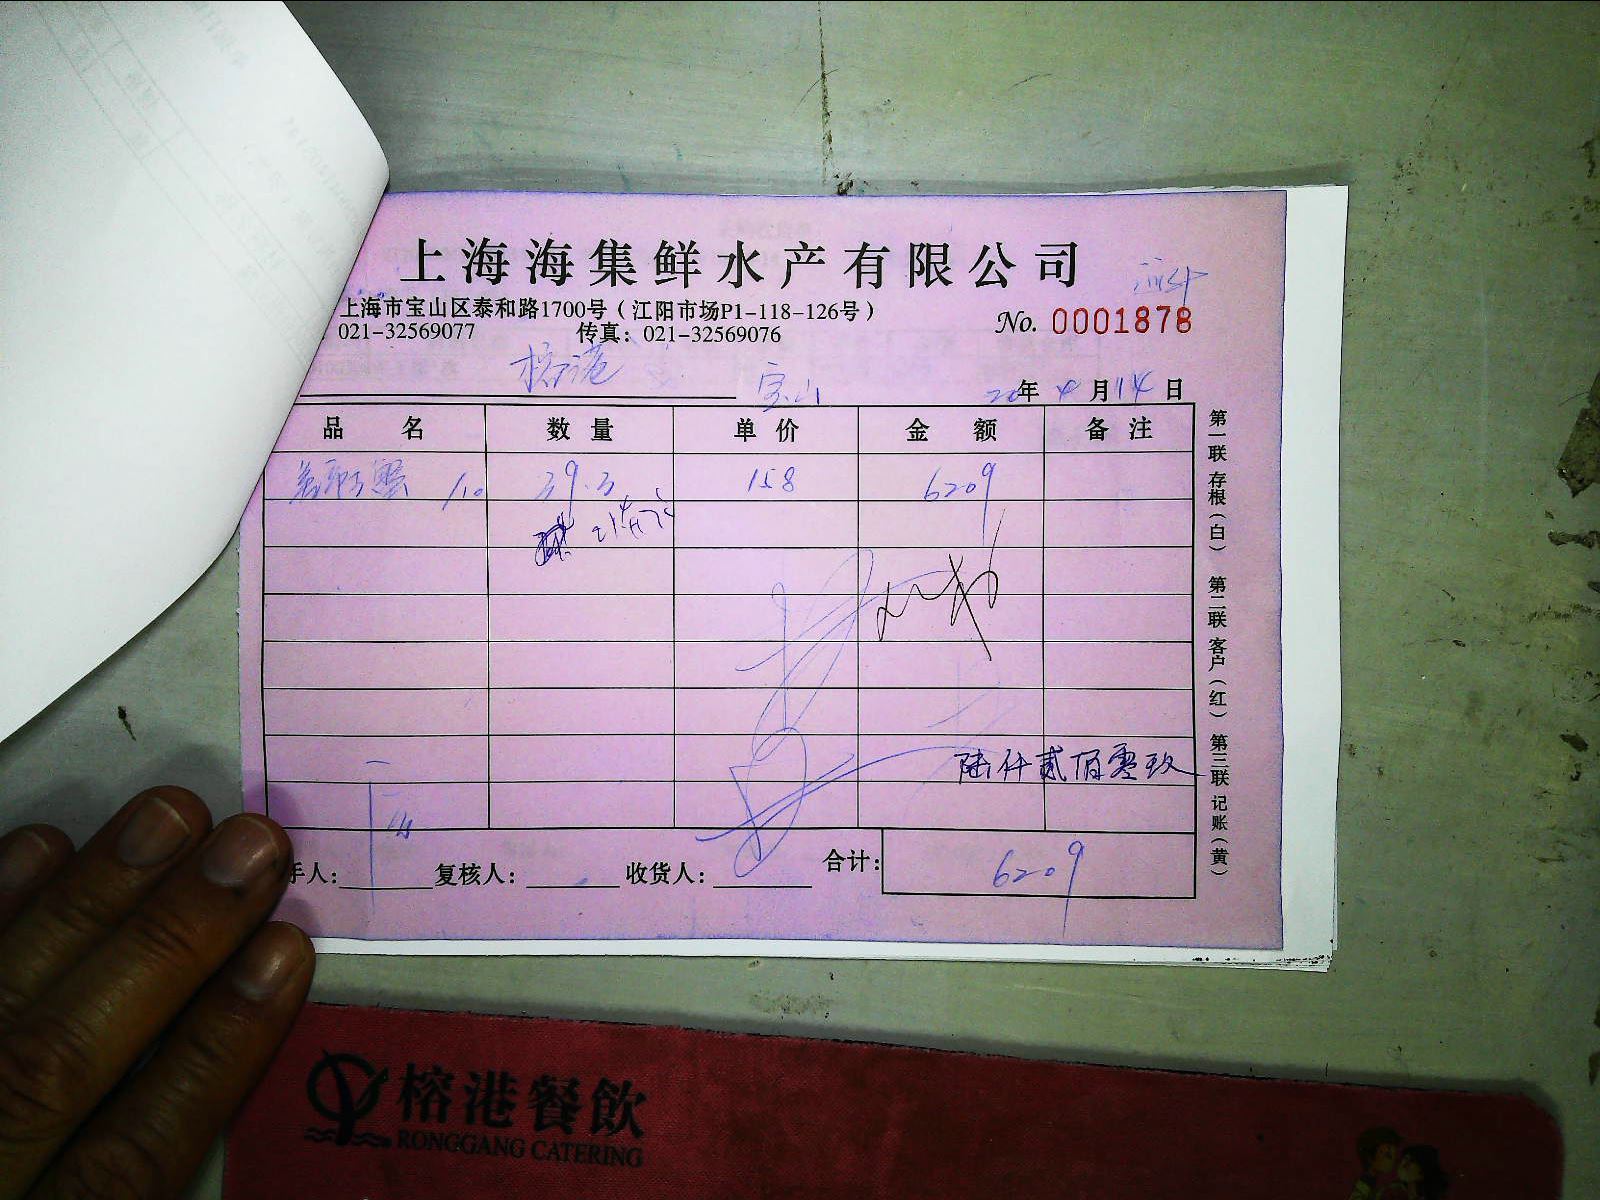 上海海集鲜水产有限公司
上海市宝山区泰和路1700号(江阳市场P1-118-126号)
021-32569077 传真: 021-32569076
No. 0001878
榕港 宝山 20年4月14日
品名 数量 单价 金额 备注
蟹 39.3 158 6209
陆仟贰佰零玖
手人: 复核人: 收货人: 合计: 6209
第一联 存根(白) 第二联 客户(红) 第三联 记账(黄)
榕港餐飲
RONGGANG CATERING